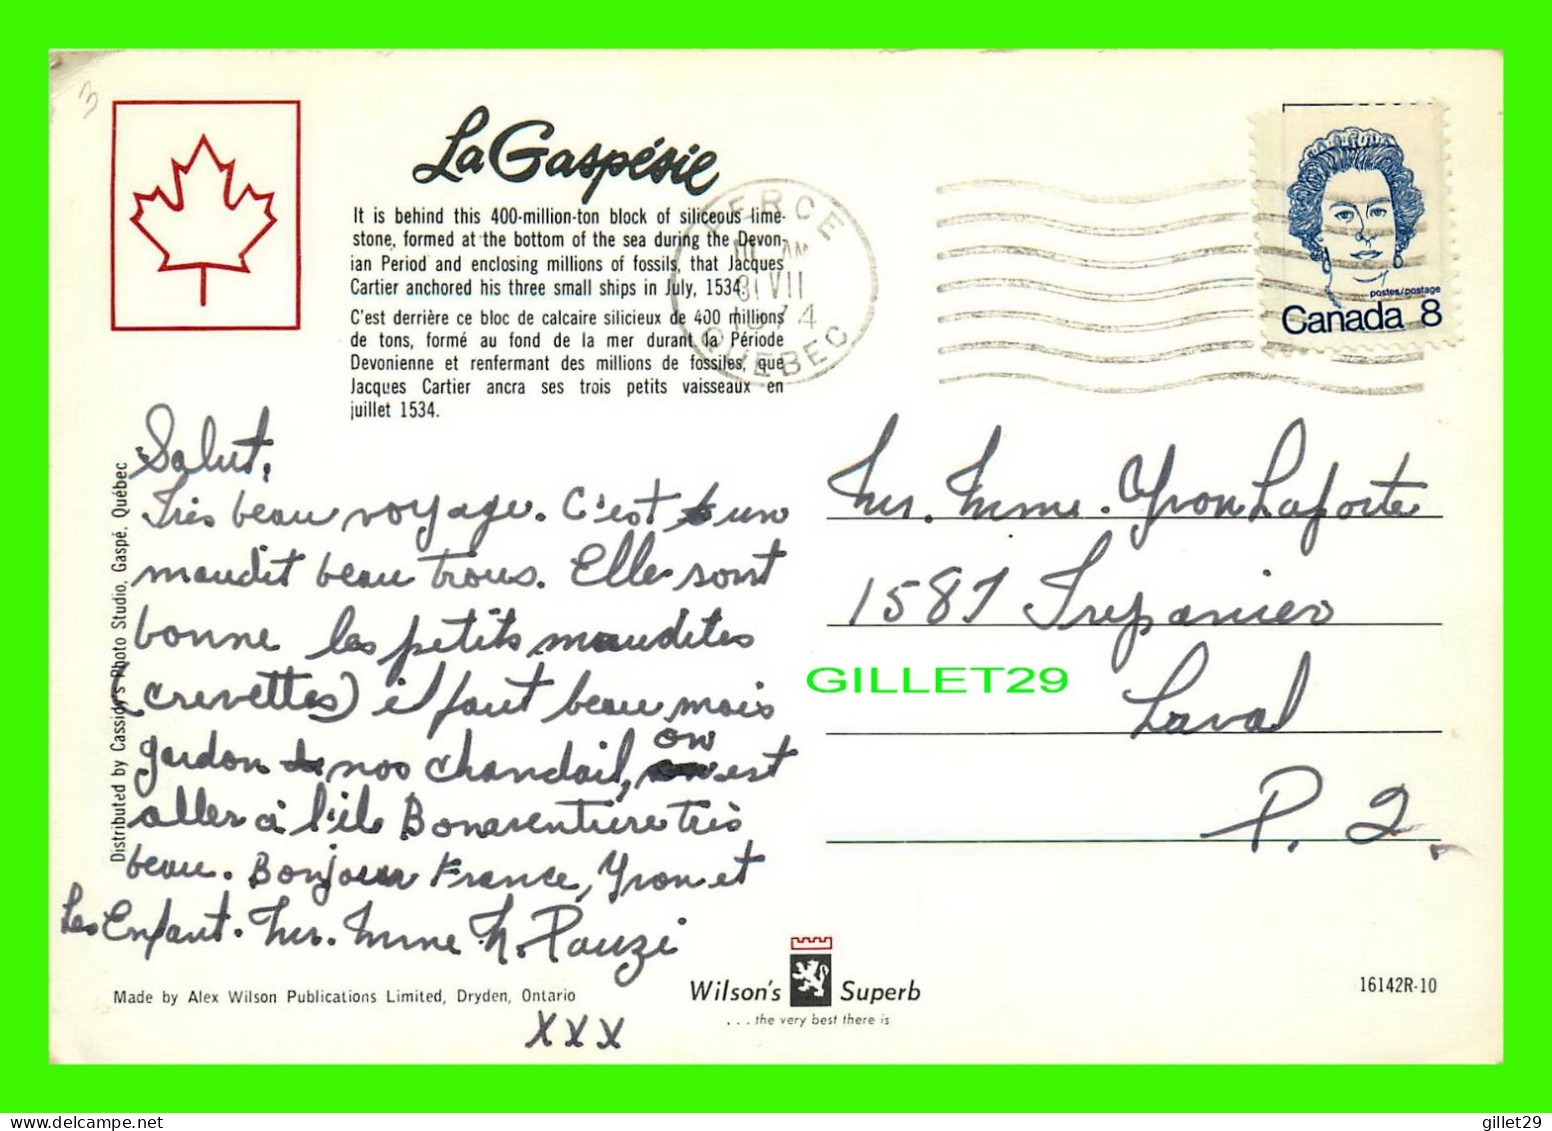 3
La Gaspésie
It is behind this 400-million-ton block of siliceous lime-
stone, formed at the bottom of the sea during the Devon-
ian Period and enclosing millions of fossils, that Jacques
Cartier anchored his three small ships in July, 1534.
C'est derrière ce bloc de calcaire silicieux de 400 millions
de tons, formé au fond de la mer durant la Période
Devonienne et renfermant des millions de fossiles, que
Jacques Cartier ancra ses trois petits vaisseaux en
juillet 1534.
PERCE
AM
VII
QUEBEC
postes/postage
Canada 8
Distributed by Cassidy's Photo Studio, Gaspé, Québec
Salut,
Très beau voyage. C'est un
maudit beau trous. Elle sont
bonne les petits maudites
(crevettes) il faut beau mais
gardon nos chandail, on est
aller à l'ile Bonaventure très
beau. Bonjour France, Yvon et
Les Enfant. Mr. Mme N. Pauzé
xxx
Mr. Mme. Yvon Laforte
1587 Trepanier
Laval
P. Q.
GILLET29
Made by Alex Wilson Publications Limited, Dryden, Ontario
Wilson's Superb
... the very best there is
16142R-10
gillet29